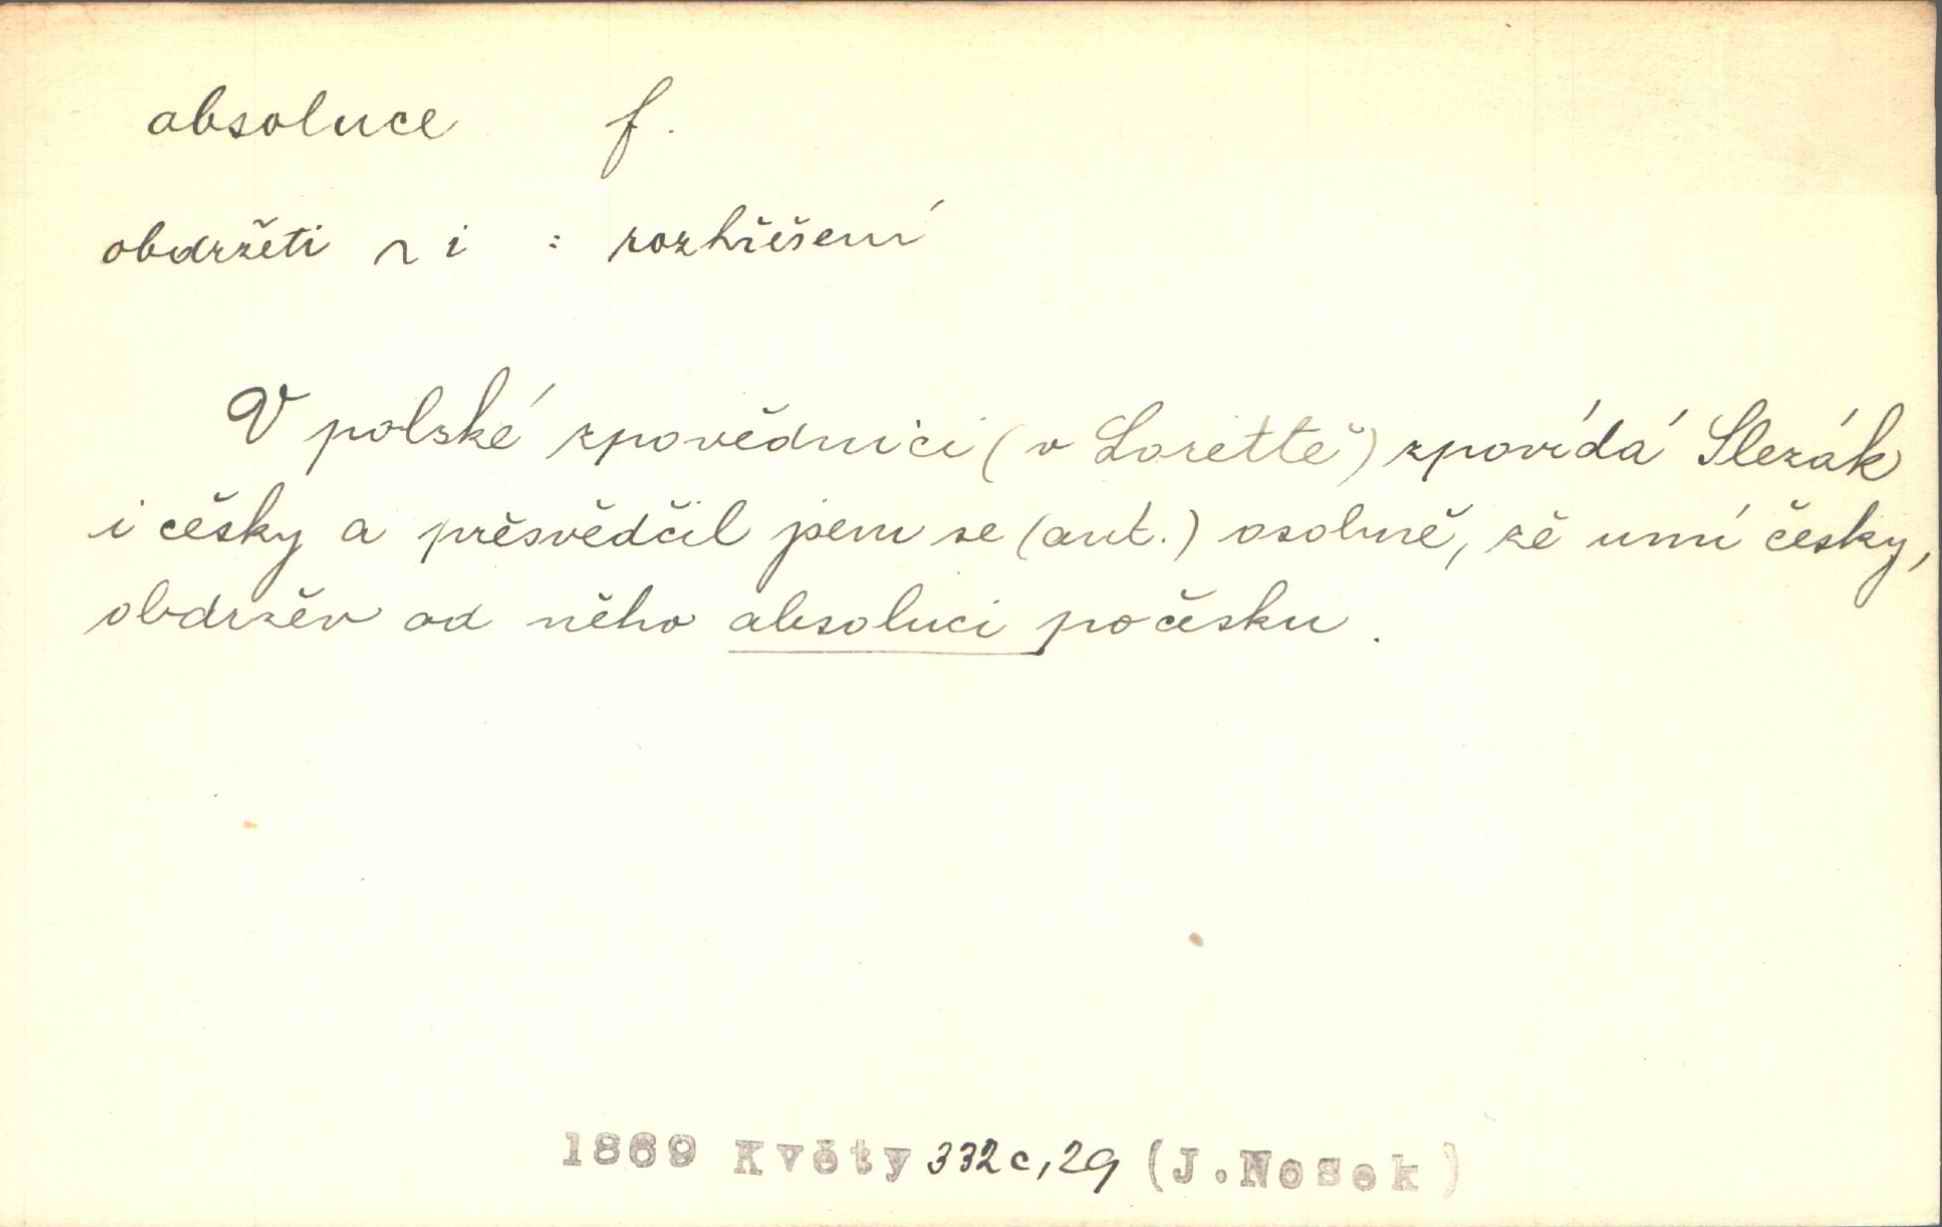 absoluce f.
obdržeti ~ i : rozhřešení
V polské zpovědnici (v Lorettě) zpovídá Slezák
i česky a přesvědčil jsem se (aut.) osobně, že umí česky,
obdržev od něho absoluci počesku.
1869 Květy 332c,29 (J.Nosek)